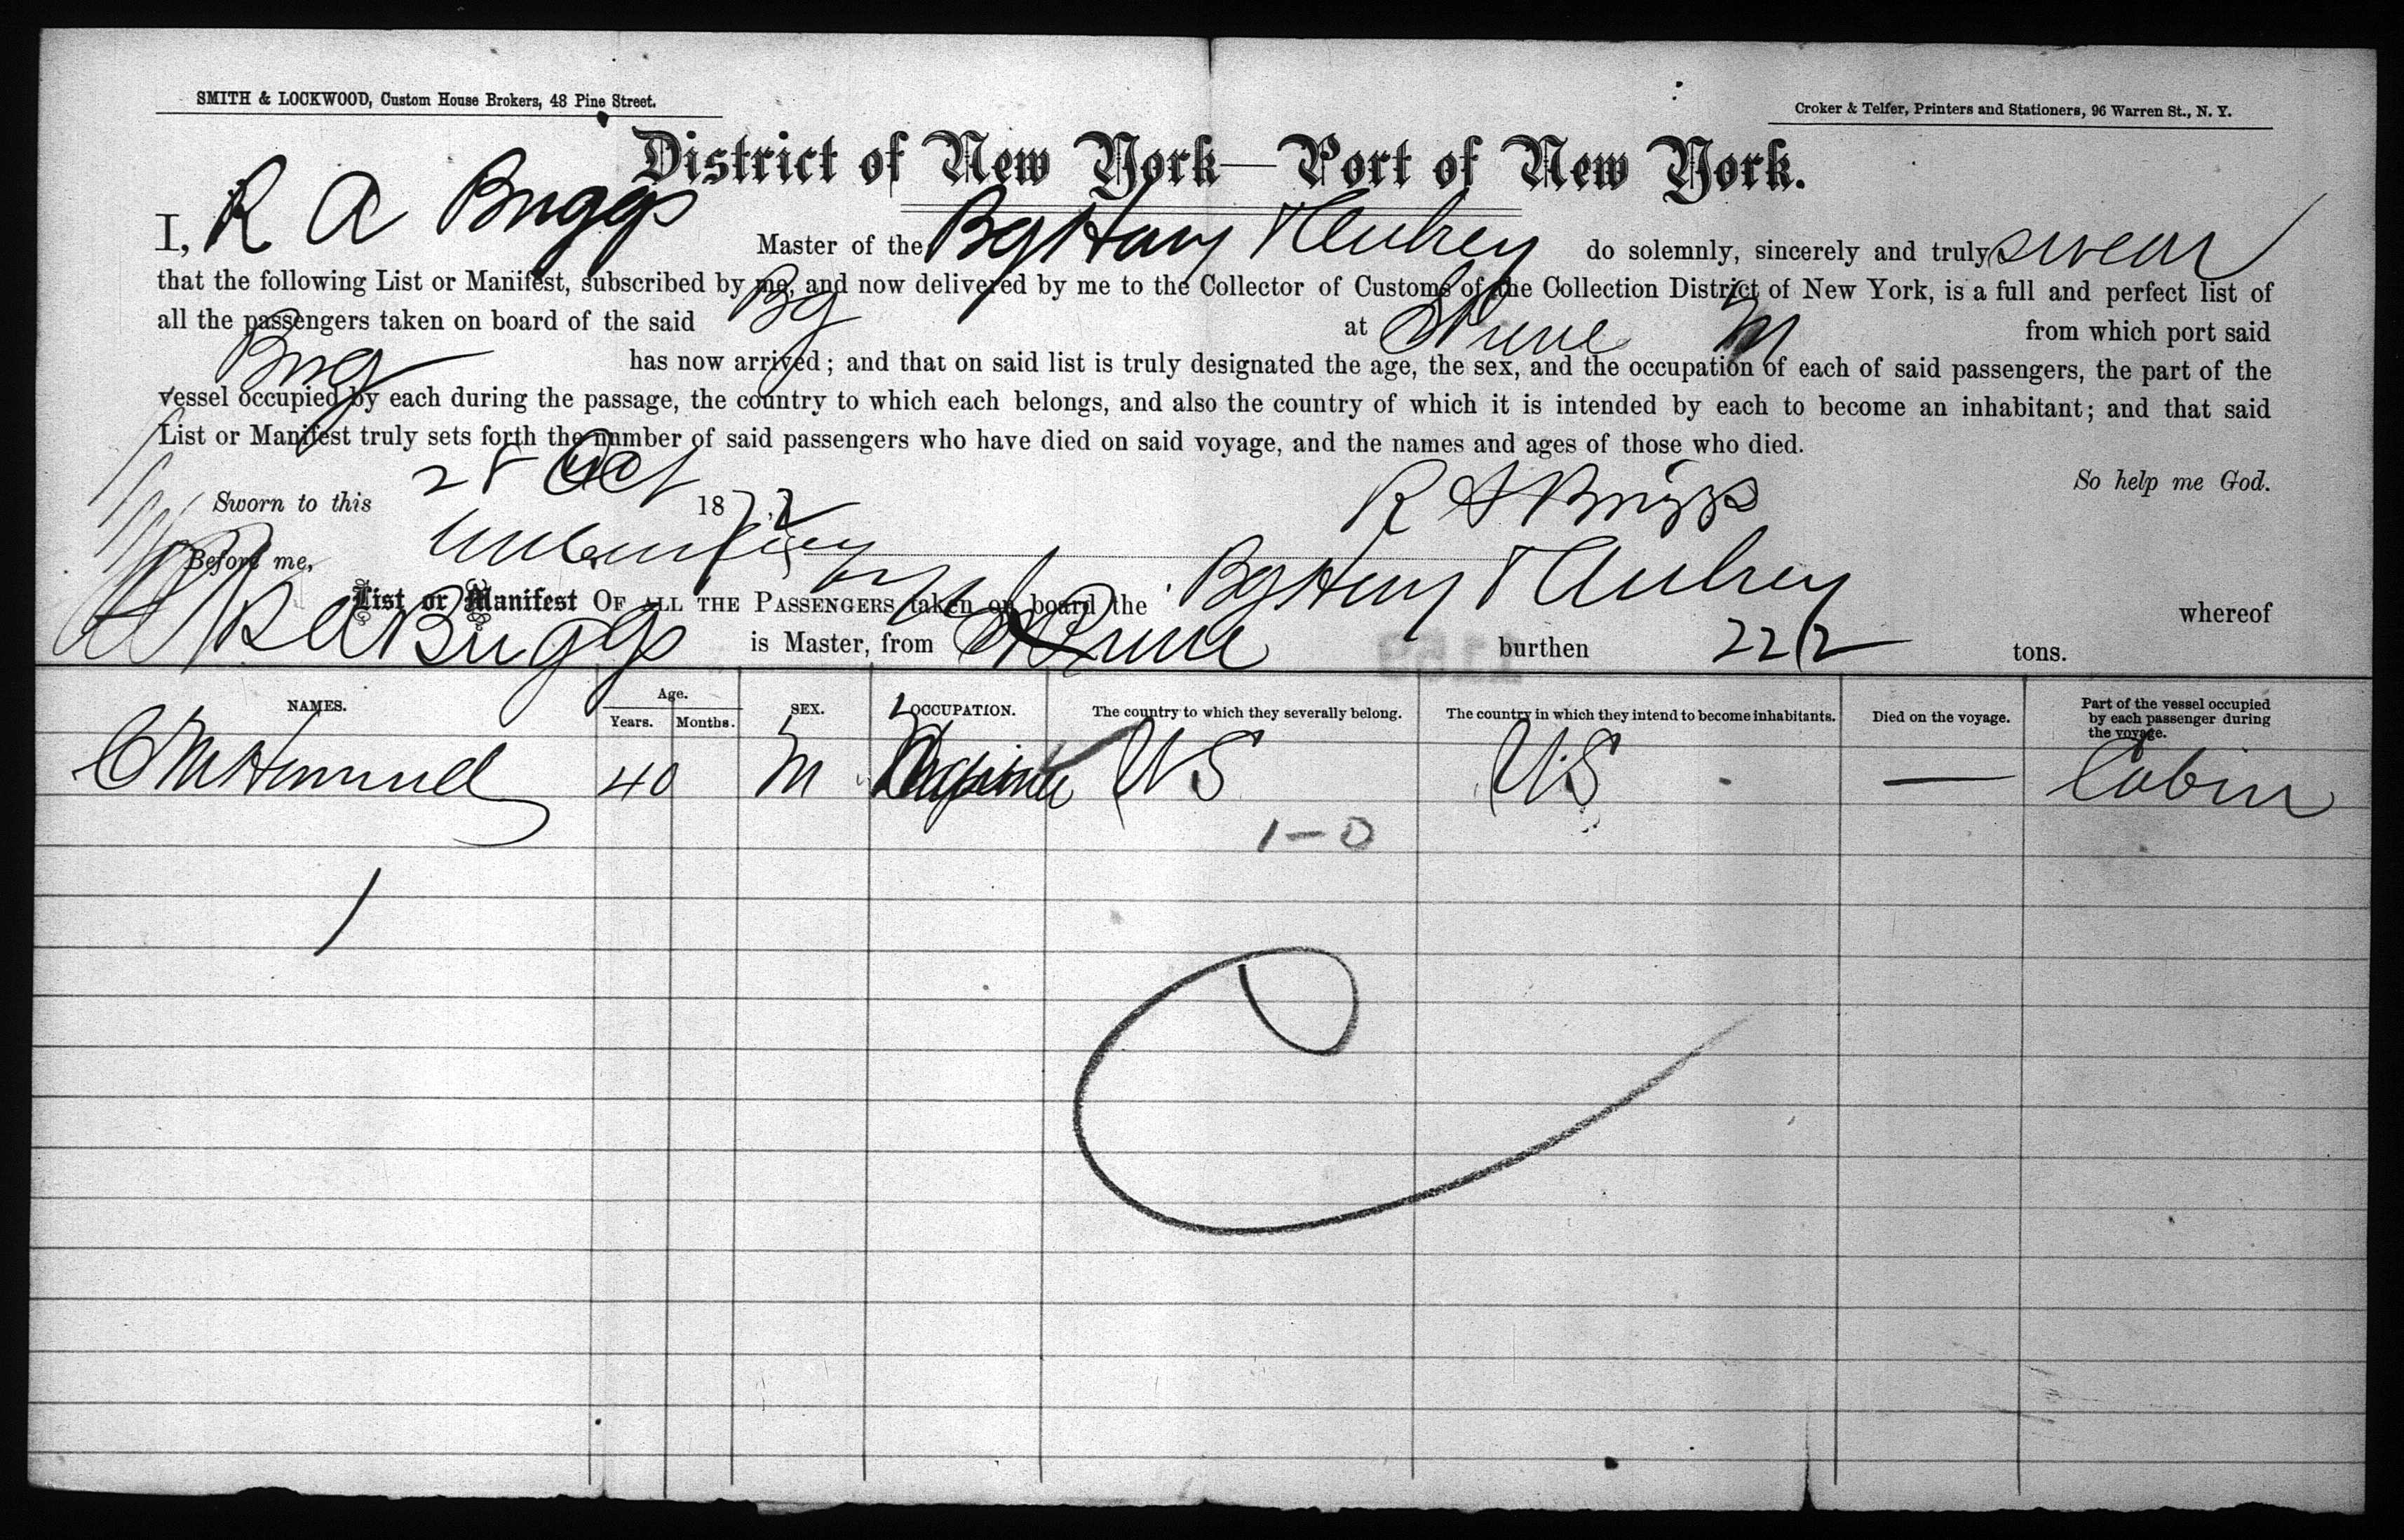 SMITH & LOCKWOOD, Custom House Brokers, 48 Pine Street.
Croker & Telfer, Printers and Stationers, 96 Warren St., N. Y.
District of New York—Port of New York.
I, R A Briggs Master of the Bg Harry & Aubrey do solemnly, sincerely and truly swear
that the following List or Manifest, subscribed by me, and now delivered by me to the Collector of Customs of the Collection District of New York, is a full and perfect list of
all the passengers taken on board of the said Bg at from which port said
Brig has now arrived; and that on said list is truly designated the age, the sex, and the occupation of each of said passengers, the part of the
vessel occupied by each during the passage, the country to which each belongs, and also the country of which it is intended by each to become an inhabitant; and that said
List or Manifest truly sets forth the number of said passengers who have died on said voyage, and the names and ages of those who died.
So help me God.
Sworn to this 28 Oct 1872
R A Briggs
Before me,
List or Manifest OF ALL THE PASSENGERS taken on board the Bg Harry & Aubrey whereof
R A Briggs is Master, from burthen 22½ tons.
NAMES. Age. Years. Months. SEX. OCCUPATION. The country to which they severally belong. The country in which they intend to become inhabitants. Died on the voyage. Part of the vessel occupied by each passenger during the voyage.
40 M US US — Cabin
1—0
1